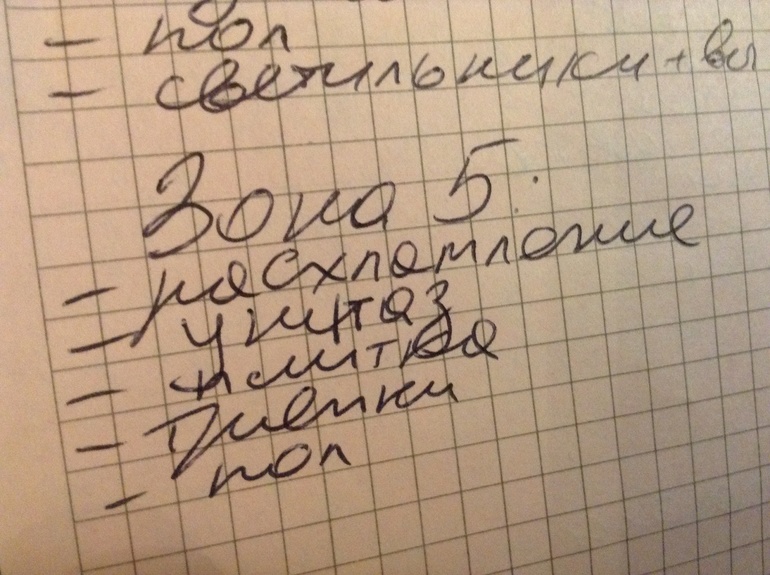 - пол
- светильники + вы
Зона 5:
- расхламление
- унитаз
- плитка
- 
- пол